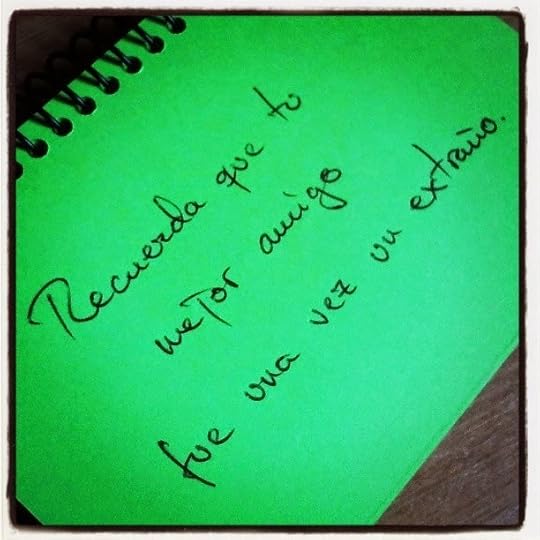 Recuerda que tu
mejor amigo
fue una vez un extraño.